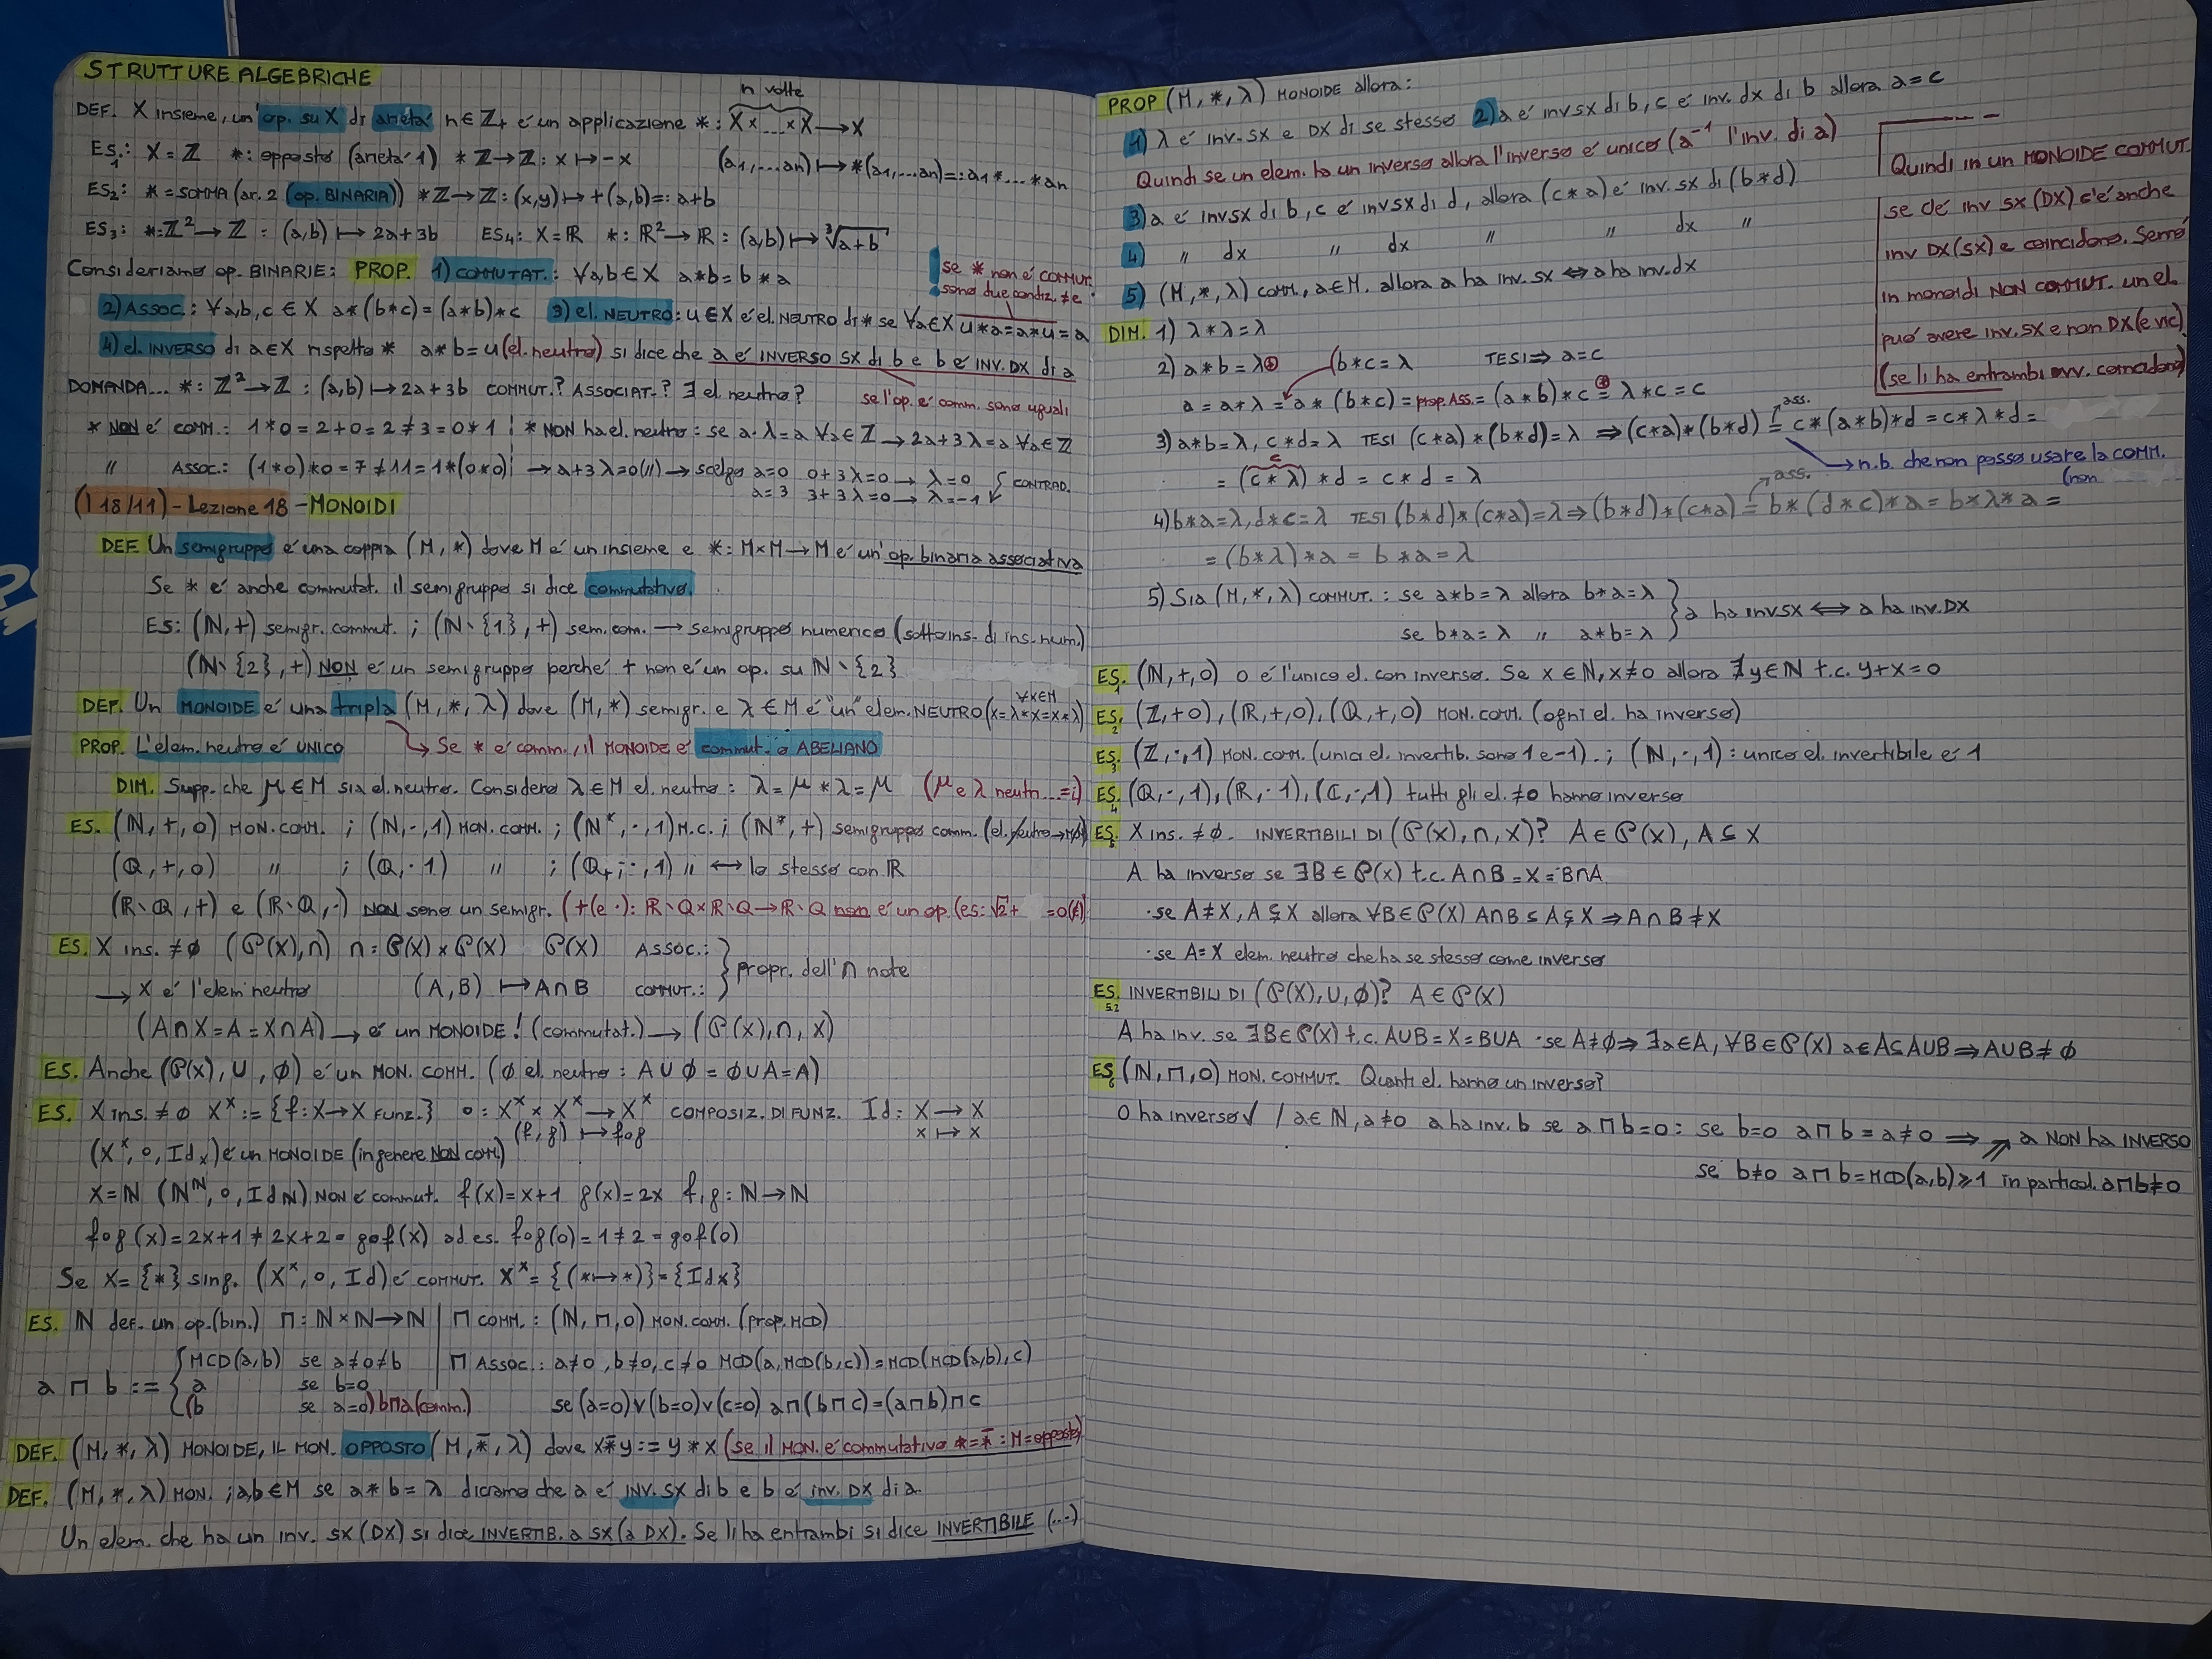 STRUTTURE ALGEBRICHE
n volte
DEF. X insieme, un'op. su X di arietà n∈Z₊ é un applicazione *: X×...×X→X
ES₁: X=Z *: opposto (arietà 1) * Z→Z: x↦-x (a1,...,an)↦*(a1,...,an)=: a1*...*an
ES₂: *=SOMMA (ar. 2 (op. BINARIA)) * Z→Z: (x,y)↦+(a,b)=: a+b
ES₃: *: Z²→Z : (a,b)↦2a+3b ES₄: X=R *: R²→R : (a,b)↦∛(a+b)
Consideriamo op. BINARIE: PROP. 1) COMMUTAT.: ∀a,b∈X a*b=b*a
! se * non é COMMUT. sono due condiz. ≠e
2) ASSOC.: ∀a,b,c∈X a*(b*c)=(a*b)*c 3) el. NEUTRO: u∈X é el. NEUTRO di * se ∀a∈X u*a=a*u=a
4) el. INVERSO di a∈X rispetto * a*b=u (el. neutro) si dice che a é INVERSO SX di b e b é INV. DX di a
DOMANDA... *: Z²→Z : (a,b)↦2a+3b COMMUT.? ASSOCIAT.? ∃ el. neutro? se l'op. é comm. sono uguali
* NON é COMM.: 1*0=2+0=2≠3=0*1 ¦ * NON ha el. neutro: se a·λ=a ∀a∈Z →2a+3λ=a ∀a∈Z
" ASSOC.: (1*0)*0=7≠11=1*(0*0) ¦ →a+3λ=0(//) → scelgo a=0 0+3λ=0→ λ=0
a=3 3+3λ=0→ λ=-1 CONTRAD.
(18/11) - Lezione 18 - MONOIDI
DEF. Un semigruppo é una coppia (M,*) dove M é un insieme e *: M×M→M é un'op. binaria associativa
Se * é anche commutat. il semigruppo si dice commutativo.
ES: (N,+) semigr. commut. ; (N∖{1},+) sem. com. → semigruppo numerico (sottoins. di ins. num.)
(N∖{2},+) NON é un semigruppo perché + non é un op. su N∖{2}
DEF. Un MONOIDE é una tripla (M,*,λ) dove (M,*) semigr. e λ∈M é "un" elem. NEUTRO (x=λ*x=x*λ) ∀x∈M
PROP. L'elem. neutro é UNICO → Se * é comm., il MONOIDE é commut. o ABELIANO
DIM. Supp. che μ∈M sia el. neutro. Considero λ∈M el. neutro: λ=μ*λ=μ (μ e λ neutri...=i)
ES. (N,+,0) MON. COMM. ; (N,·,1) MON. COMM. ; (N*,·,1) M.C. ; (N*,+) semigruppo comm. (el. neutro→
(Q,+,0) " ; (Q,·1) " ; (Q₊;·,1) " ↔ lo stesso con R
(R∖Q,+) e (R∖Q,·) NON sono un semigr. (+(e ·): R∖Q×R∖Q→R∖Q non é un op. (es: √2+ =0(∉)
ES. X ins. ≠∅ (P(X),∩) ∩: P(X)×P(X) P(X) ASSOC.: } propr. dell'∩ note
→ X é l'elem neutro (A,B)↦A∩B COMMUT.:
(A∩X=A=X∩A)→ é un MONOIDE! (commutat.)→ (P(X),∩,X)
ES. Anche (P(X),∪,∅) é un MON. COMM. (∅ el. neutro: A∪∅=∅∪A=A)
ES. X ins. ≠∅ Xˣ:={f:X→X FUNZ.} ∘: Xˣ×Xˣ→Xˣ COMPOSIZ. DI FUNZ. Id: X→X
(f,g)↦f∘g x↦x
(Xˣ,∘,Idx) é un MONOIDE (in genere NON COM.)
X=N (Nᴺ,∘,IdN) NON é commut. f(x)=x+1 g(x)=2x f,g: N→N
f∘g(x)=2x+1≠2x+2=g∘f(x) ad es. f∘g(0)=1≠2=g∘f(0)
Se X={*} sing. (Xˣ,∘,Id) é COMMUT. Xˣ={(*↦*)}={Idx}
ES. N def. un op.(bin.) ⊓: N×N→N | ⊓ COMM.: (N,⊓,0) MON. COMM. (prop. MCD)
a⊓b:= { MCD(a,b) se a≠0≠b | ⊓ ASSOC.: a≠0, b≠0, c≠0 MCD(a,MCD(b,c))=MCD(MCD(a,b),c)
a se b=0
(b se a=0) b⊓a (comm.) se (a=0)∨(b=0)∨(c=0) a⊓(b⊓c)=(a⊓b)⊓c
DEF. (M,*,λ) MONOIDE, IL MON. OPPOSTO (M,*̄,λ) dove x*̄y:=y*x (se il MON. é commutativo *=*̄ : M=opposto)
DEF. (M,*,λ) MON. ; a,b∈M se a*b=λ diciamo che a é INV. SX di b e b é inv. DX di a.
Un elem. che ha un inv. SX (DX) si dice INVERTIB. a SX (a DX). Se li ha entrambi si dice INVERTIBILE (...)
PROP (M,*,λ) MONOIDE allora:
1) λ é inv. SX e DX di se stesso 2) a é inv SX di b, c é inv. dx di b allora a=c
Quindi se un elem. ha un inverso allora l'inverso é unico (a⁻¹ l'inv. di a)
3) a é inv SX di b, c é inv SX di d, allora (c*a) é inv. SX di (b*d)
4) " dx " dx " " dx "
5) (M,*,λ) COMM., a∈M. allora a ha inv. SX ⇔ a ha inv. dx
Quindi in un MONOIDE COMMUT.
se c'é inv SX (DX) c'é anche
inv DX (SX) e coincidono. Sennó
in monoidi NON COMMUT. un el.
può avere inv. SX e non DX (e vic)
(se li ha entrambi ovv. coincidono)
DIM. 1) λ*λ=λ
2) a*b=λ⊕ (b*c=λ TESI⇒ a=c
a=a*λ=a*(b*c)=prop. ASS.=(a*b)*c=⊕ λ*c=c
3) a*b=λ, c*d=λ TESI (c*a)*(b*d)=λ ⇒(c*a)*(b*d)= ass. c*(a*b)*d=c*λ*d=
→ n.b. che non posso usare la COMM. (non
=(c*λ)*d=c*d=λ
4) b*a=λ, d*c=λ TESI (b*d)*(c*a)=λ⇒(b*d)*(c*a)= ass. b*(d*c)*a=b*λ*a=
=(b*λ)*a=b*a=λ
5) Sia (M,*,λ) COMMUT.: se a*b=λ allora b*a=λ } a ha inv SX ⟺ a ha inv. DX
se b*a=λ " a*b=λ
ES.₁ (N,+,0) 0 é l'unico el. con inverso. Se x∈N, x≠0 allora ∄y∈N t.c. y+x=0
ES.₂ (Z,+0), (R,+,0), (Q,+,0) MON. COMM. (ogni el. ha inverso)
ES.₃ (Z,·,1) MON. COMM. (unici el. invertib. sono 1 e -1). ; (N,·,1): unico el. invertibile é 1
ES.₄ (Q,·,1), (R,·1), (C,·,1) tutti gli el. ≠0 hanno inverso
ES.₅ X ins. ≠∅. INVERTIBILI DI (P(X),∩,X)? A∈P(X), A⊆X
A ha inverso se ∃B∈P(X) t.c. A∩B=X=B∩A
·se A≠X, A⊊X allora ∀B∈P(X) A∩B⊆A⊊X ⇒A∩B≠X
·se A=X elem. neutro che ha se stesso come inverso
ES.5.2 INVERTIBILI DI (P(X),∪,∅)? A∈P(X)
A ha inv. se ∃B∈P(X) t.c. A∪B=X=B∪A ·se A≠∅⇒∃a∈A, ∀B∈P(X) a∈A⊆A∪B⇒A∪B≠∅
ES₆ (N,⊓,0) MON. COMMUT. Quanti el. hanno un inverso?
0 ha inverso √ / a∈N, a≠0 a ha inv. b se a⊓b=0: se b=0 a⊓b=a≠0 ⇒ a NON ha INVERSO
se b≠0 a⊓b=MCD(a,b)⩾1 in particol. a⊓b≠0